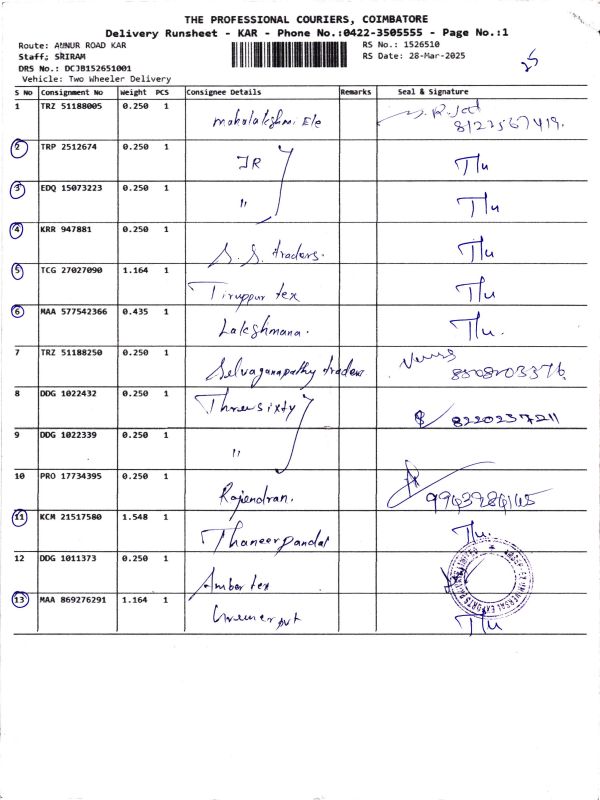 THE PROFESSIONAL COURIERS, COIMBATORE
Delivery Runsheet - KAR - Phone No.:0422-3505555 - Page No.:1
Route: ANNUR ROAD KAR
RS No.: 1526510
Staff; SRIRAM
RS Date: 28-Mar-2025
25
DRS No.: DCJB152651001
Vehicle: Two Wheeler Delivery
S No Consignment No Weight PCS Consignee Details Remarks Seal & Signature
1 TRZ 51188005 0.250 1 Mahalakshmi Ele
2 TRP 2512674 0.250 1 JR Tlu
3 EDQ 15073223 0.250 1 " Tlu
4 KRR 947881 0.250 1 S. S. traders. Tlu
5 TCG 27027090 1.164 1 Tiruppur tex Tlu
6 MAA 577542366 0.435 1 Lakshmana. Tlu.
7 TRZ 51188250 0.250 1 Selvaganapathy traders 8508203376
8 DDG 1022432 0.250 1 Threesixty 8220237211
9 DDG 1022339 0.250 1 "
10 PRO 17734395 0.250 1 Rajendran.
11 KCM 21517580 1.548 1 Thaneerpandal Tlu.
12 DDG 1011373 0.250 1 Amber tex
13 MAA 869276291 1.164 1 Tlu